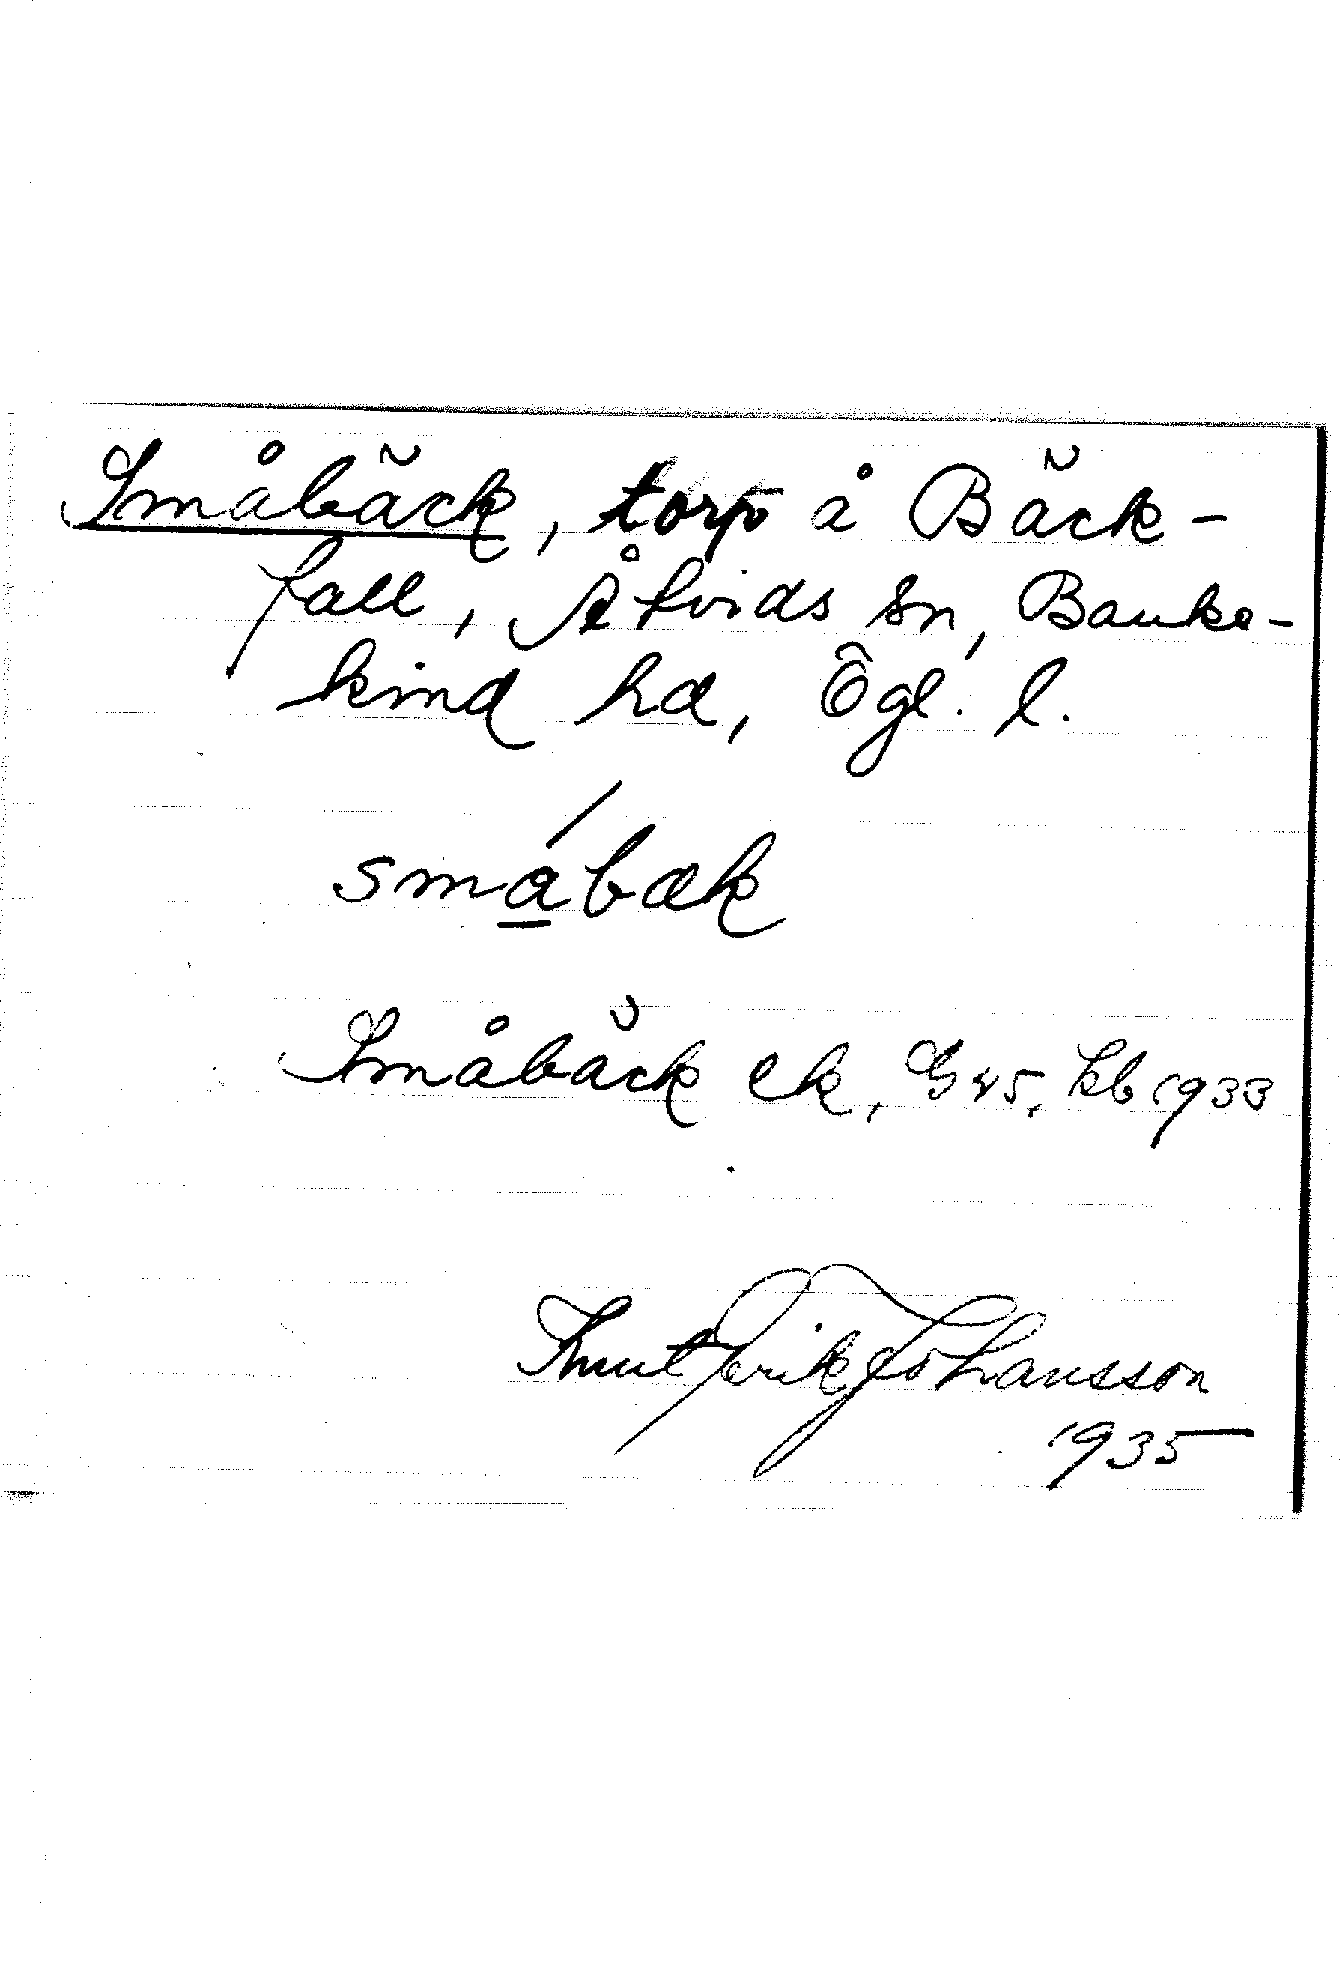 Småbäck, torp å Bäck-
fall, Åtvids sn, Banke-
kind hd, Ögl. l.
småbæk
Småbäck ek, G 45, kb 1933
Knut Erik Johansson
1935